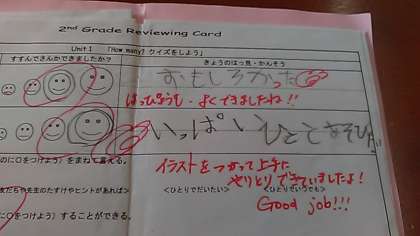 2nd Grade Reviewing Card
Unit 1 「How many? クイズをしよう」
すすんでさんかできましたか？ きょうのはっ見・かんそう
おもしろかった
はっぴょうも よくできましたね!!
いっぱい
のに○をつけよう）をまねて言える。
イラストをつかって上手に
やりとりできていましたよ!
友だちや先生のたすけやヒントがあれば> <ひとりでだいたい> <ひとりでいつでも>
Good job!!!
に○をつけよう）することができる。